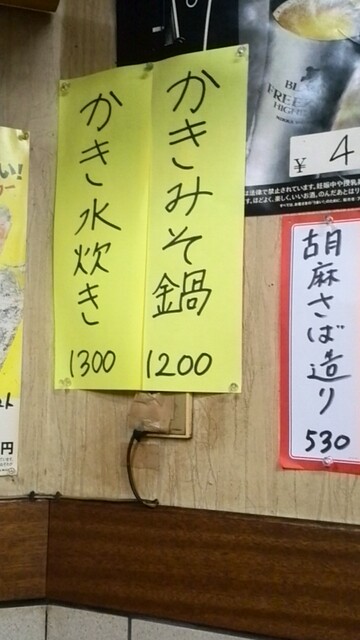 かきみそ鍋
1200
かき水炊き
1300
胡麻さば造り
530
¥4
い!
円